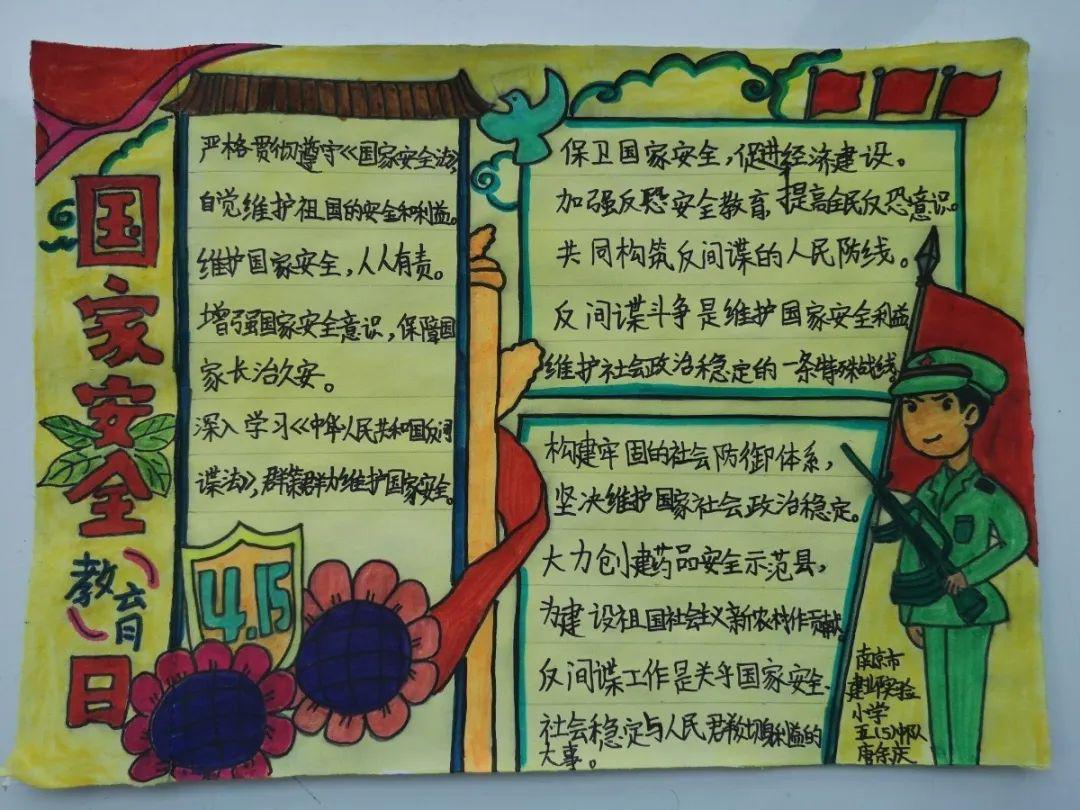 国家安全
教育
日
严格贯彻遵守《国家安全法》,
自觉维护祖国的安全和利益。
维护国家安全，人人有责。
增强国家安全意识，保障国
家长治久安。
深入学习《中华人民共和国反间
谍法》，群策群力维护国家安全。
4.15
保卫国家安全，促进经济建设。
加强反恐安全教育，提高全民反恐意识。
共同构筑反间谍的人民防线。
反间谍斗争是维护国家安全利益
维护社会政治稳定的一条特殊战线。
构建牢固的社会防御体系，
坚决维护国家社会政治稳定。
大力创建药品安全示范县，
为建设祖国社会主义新农村作贡献。
反间谍工作是关乎国家安全、
社会稳定与人民群教切身利益的
大事。
南京市
建邺实验
小学
五(5)中队
唐余庆